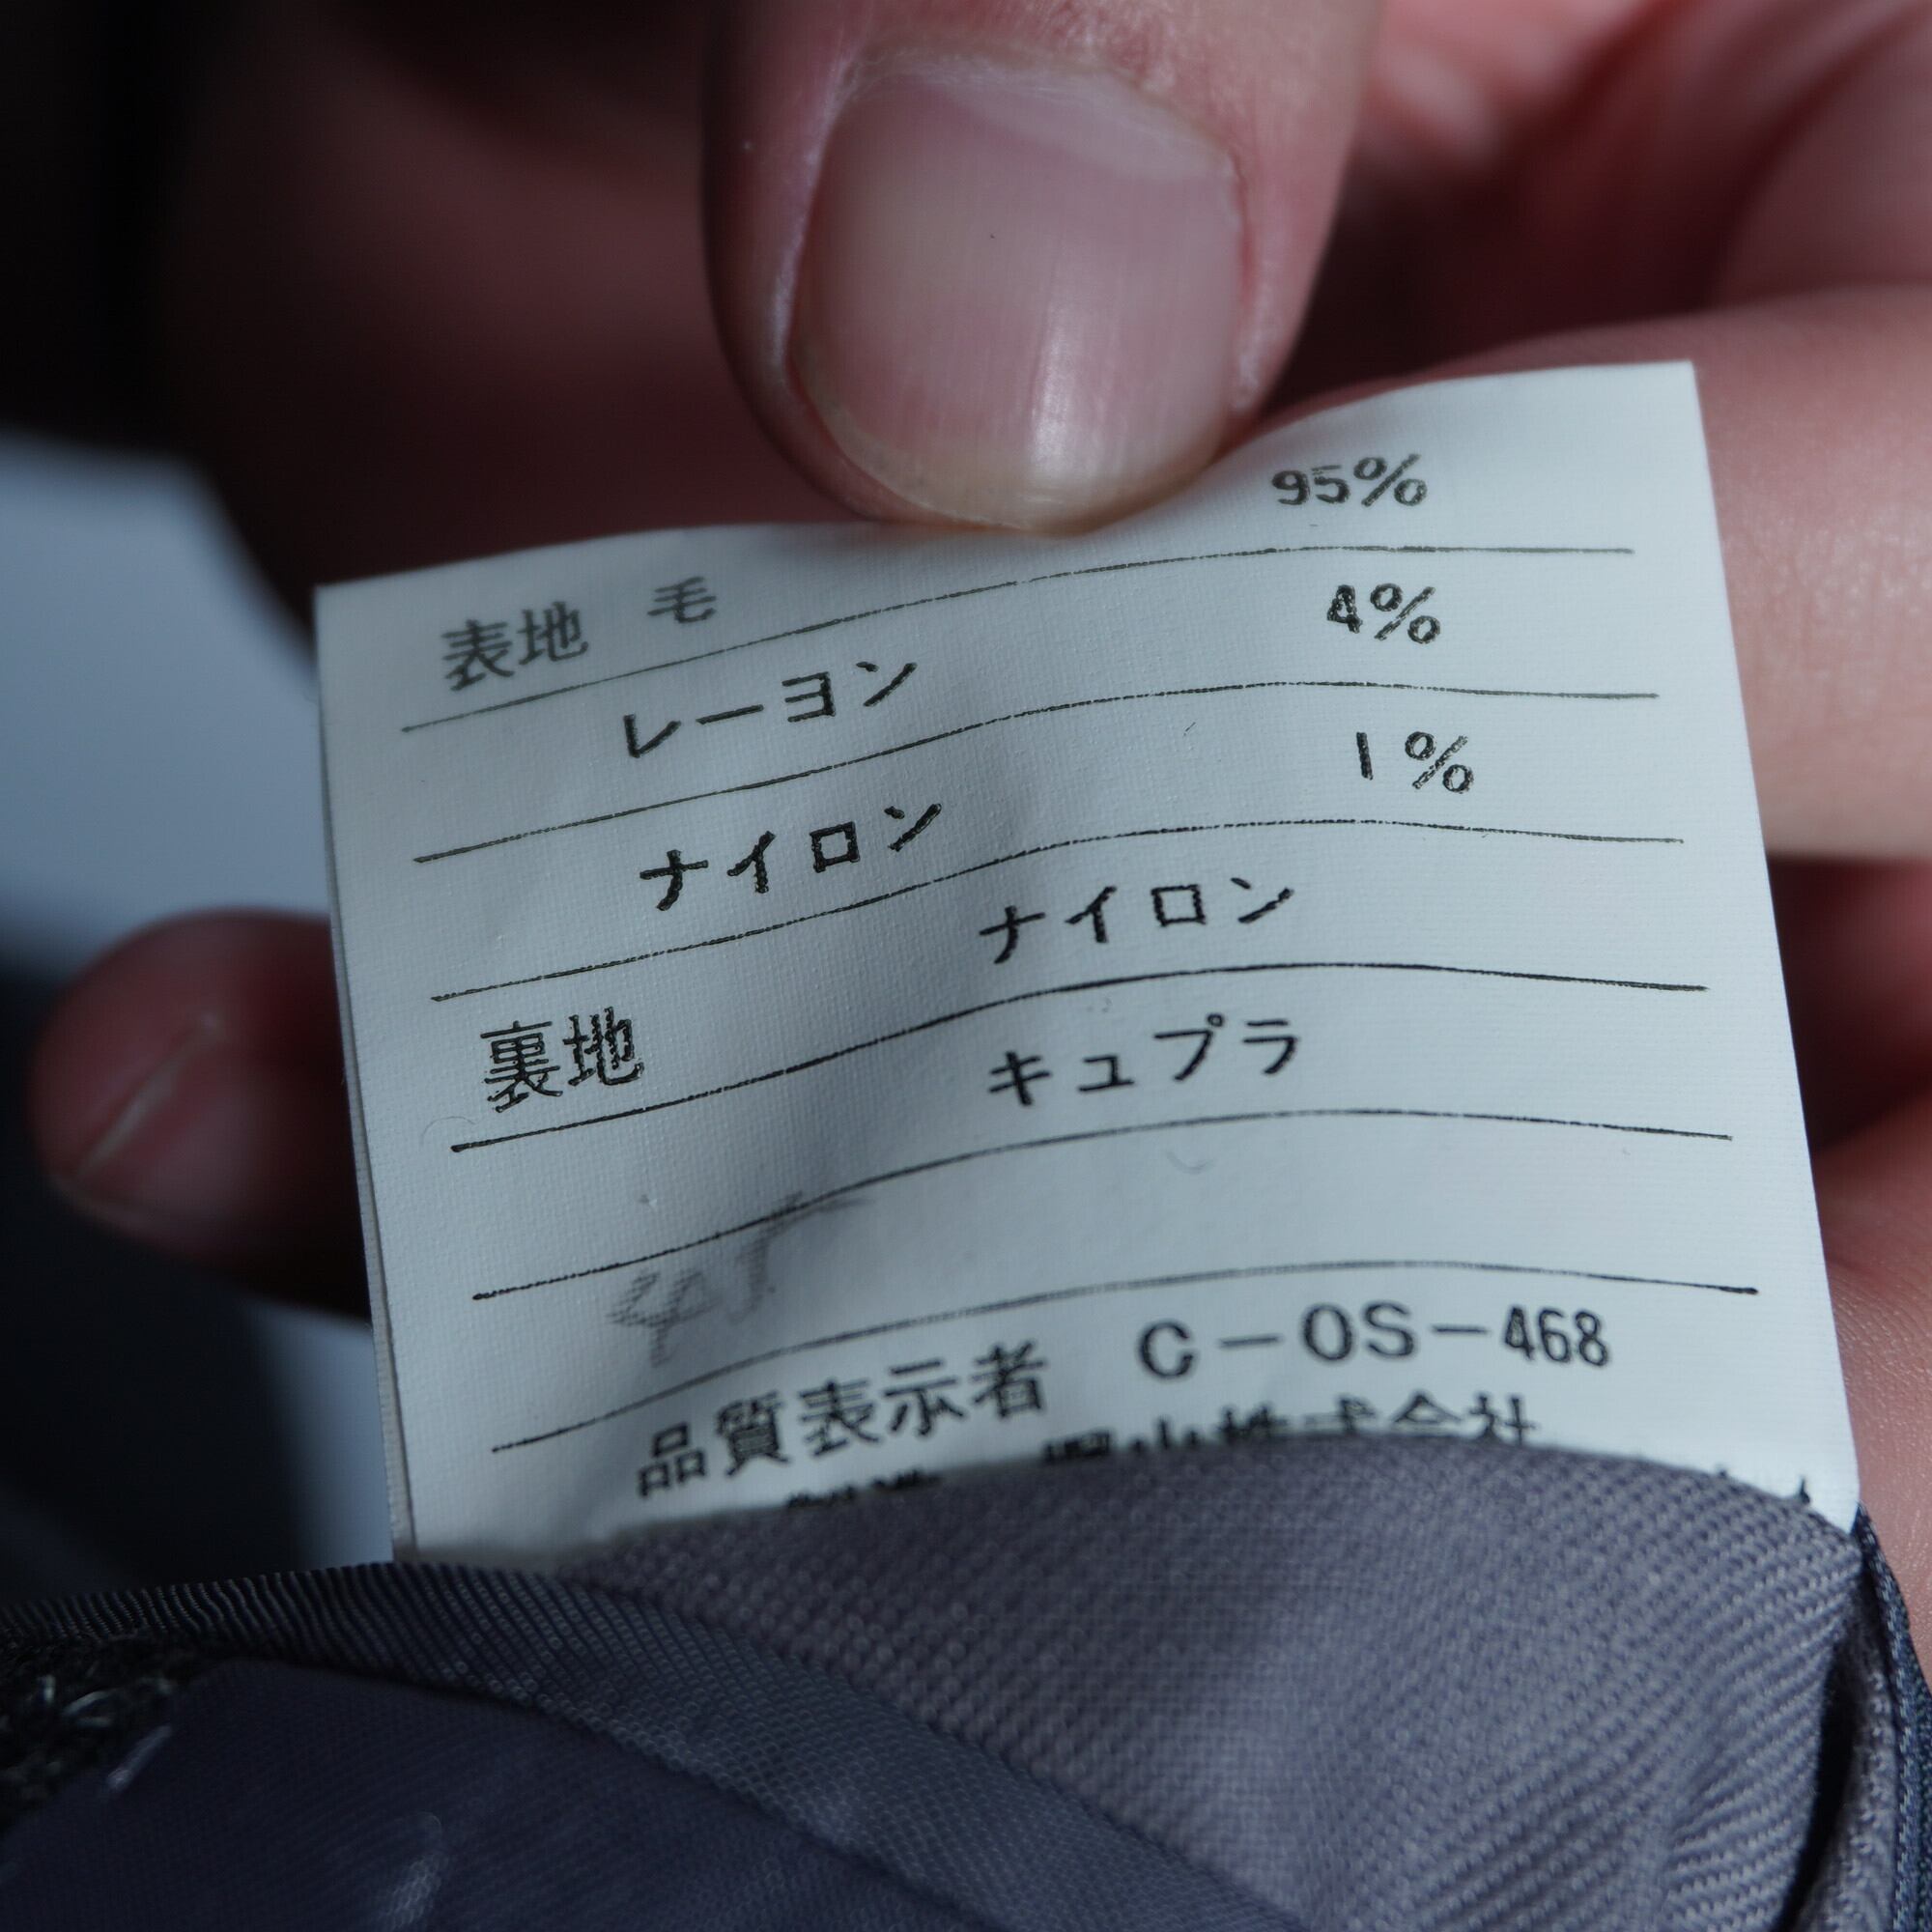 表地 毛 95%
レーヨン 4%
ナイロン 1%
ナイロン
裏地
キュプラ
品質表示者 C-OS-468
株式会社